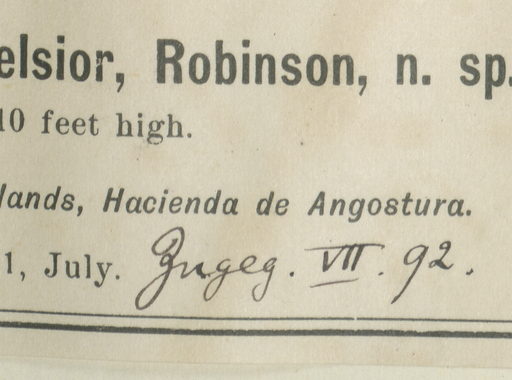 elsior, Robinson, n. sp.
10 feet high.
lands, Hacienda de Angostura.
1, July. Zugeg. VII. 92.